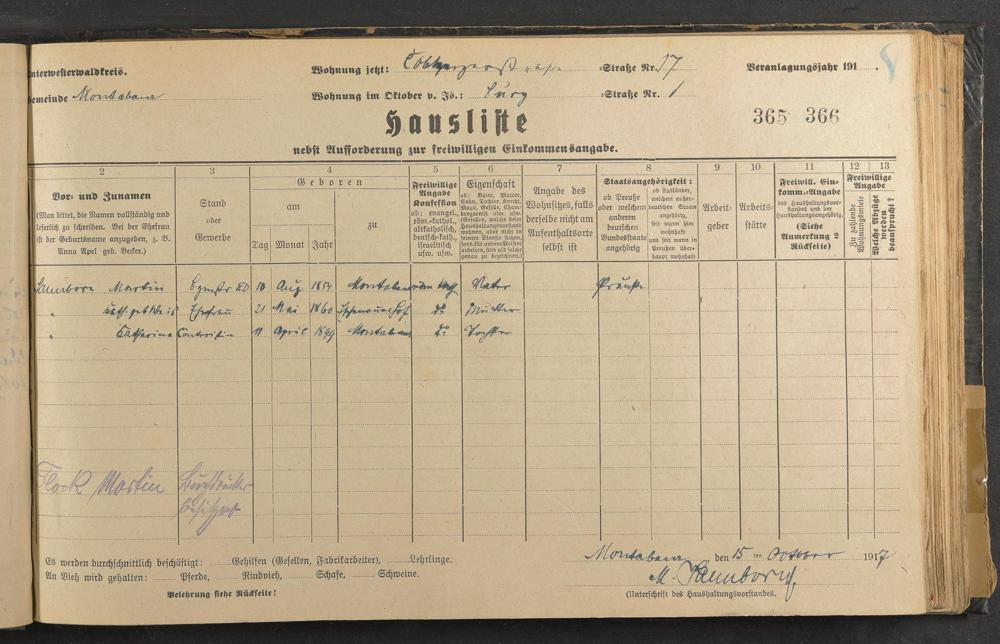 Unterwesterwaldkreis.
Wohnung jetzt: Coblenzerstraße =Straße Nr. 17
Veranlagungsjahr 191
Gemeinde Montabaur
Wohnung im Oktober v. Js.: Burg =Straße Nr. 1
365 366
Hausliste
nebst Aufforderung zur freiwilligen Einkommensangabe.
2 3 4 5 6 7 8 9 10 11 12 13
Vor- und Zunamen
(Man bittet, die Namen vollständig und
leserlich zu schreiben. Bei der Ehefrau
ist der Geburtsname anzugeben, z. B.
Anna Apel geb. Becker.)
Stand
oder
Gewerbe
Geboren
am
zu
Tag Monat Jahr
Freiwillige
Angabe
Konfession
ob: evangel.,
röm.-kathol.,
altkatholisch,
deutsch-kath.,
israelitisch
usw. usw.
Eigenschaft
ob: Vater, Mutter,
Sohn, Tochter, Knecht,
Magd, Geselle, Cham-
bregarnist usw. usw.
(Gesellen, welche beim
Haushaltungsvorstand
wohnen, aber nicht in
seinem Dienste stehen,
sond. für andere Meister
arbeiten, sind als solche
genau zu bezeichnen.)
Angabe des
Wohnsitzes, falls
derselbe nicht am
Aufenthaltsorte
selbst ist
Staatsangehörigkeit:
ob Preuße
oder welchem
anderen
deutschen
Bundesstaate
angehörig
ob Ausländer,
welchem außer-
deutschen Staate
angehörig,
seit wann hier
wohnhaft
und seit wann in
Preußen über-
haupt wohnhaft
Arbeit-
geber
Arbeits-
stätte
Freiwill. Ein-
komm.-Angabe
des Haushaltungsvor-
standes und der
Haushaltungsangehörig.
(Siehe
Anmerkung 2
Rückseite)
Freiwillige
Angabe
Zu zahlende
Wohnungsmiete
Welche Abzüge
werden
beansprucht?
Martin 10 Aug 1854 Montabaur Vater Preuße
" Kath. geb. Ehefrau 21 Mai 1860 do Mutter
" Katharina Contoristin 11 April 1899 Montabaur do Tochter
Flock Martin Buchdrucker
besitzer
Es werden durchschnittlich beschäftigt: Gehilfen (Gesellen, Fabrikarbeiter), Lehrlinge.
An Vieh wird gehalten: Pferde, Rindvieh, Schafe, Schweine.
Belehrung siehe Rückseite!
Montabaur den 15 ten October 1917
M.
(Unterschrift des Haushaltungsvorstandes.